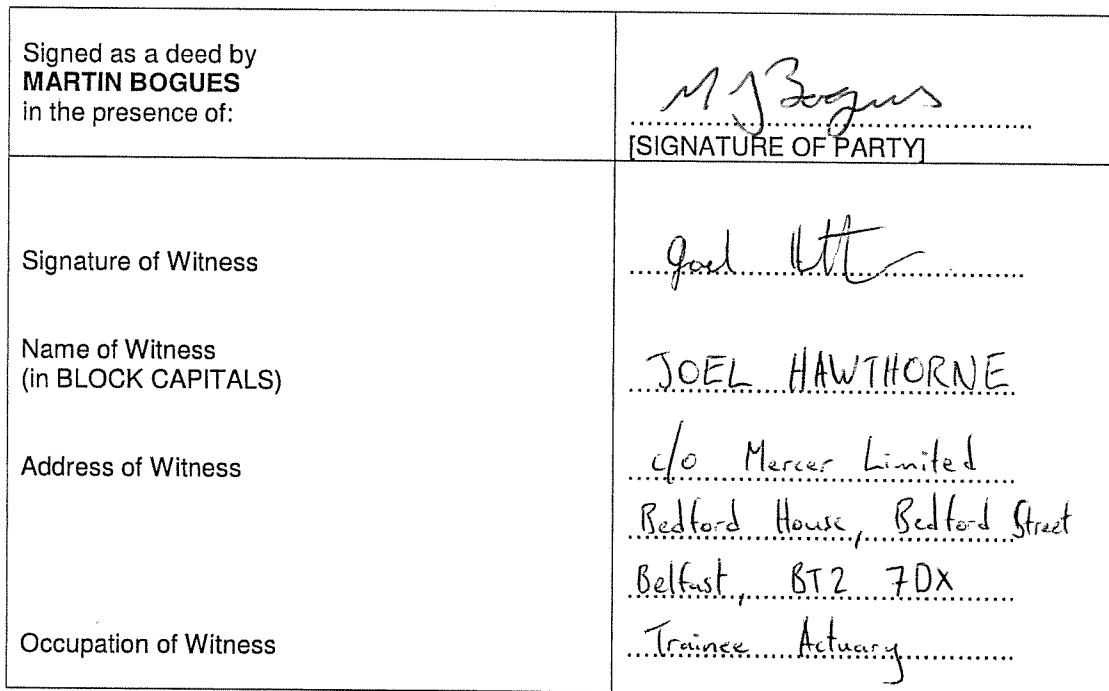 Signed as a deed by
MARTIN BOGUES
in the presence of:
M J Bogues
[SIGNATURE OF PARTY]
Signature of Witness
Joel
Name of Witness
(in BLOCK CAPITALS)
JOEL HAWTHORNE
Address of Witness
c/o Mercer Limited
Bedford House, Bedford Street
Belfast, BT2 7DX
Occupation of Witness
Trainee Actuary